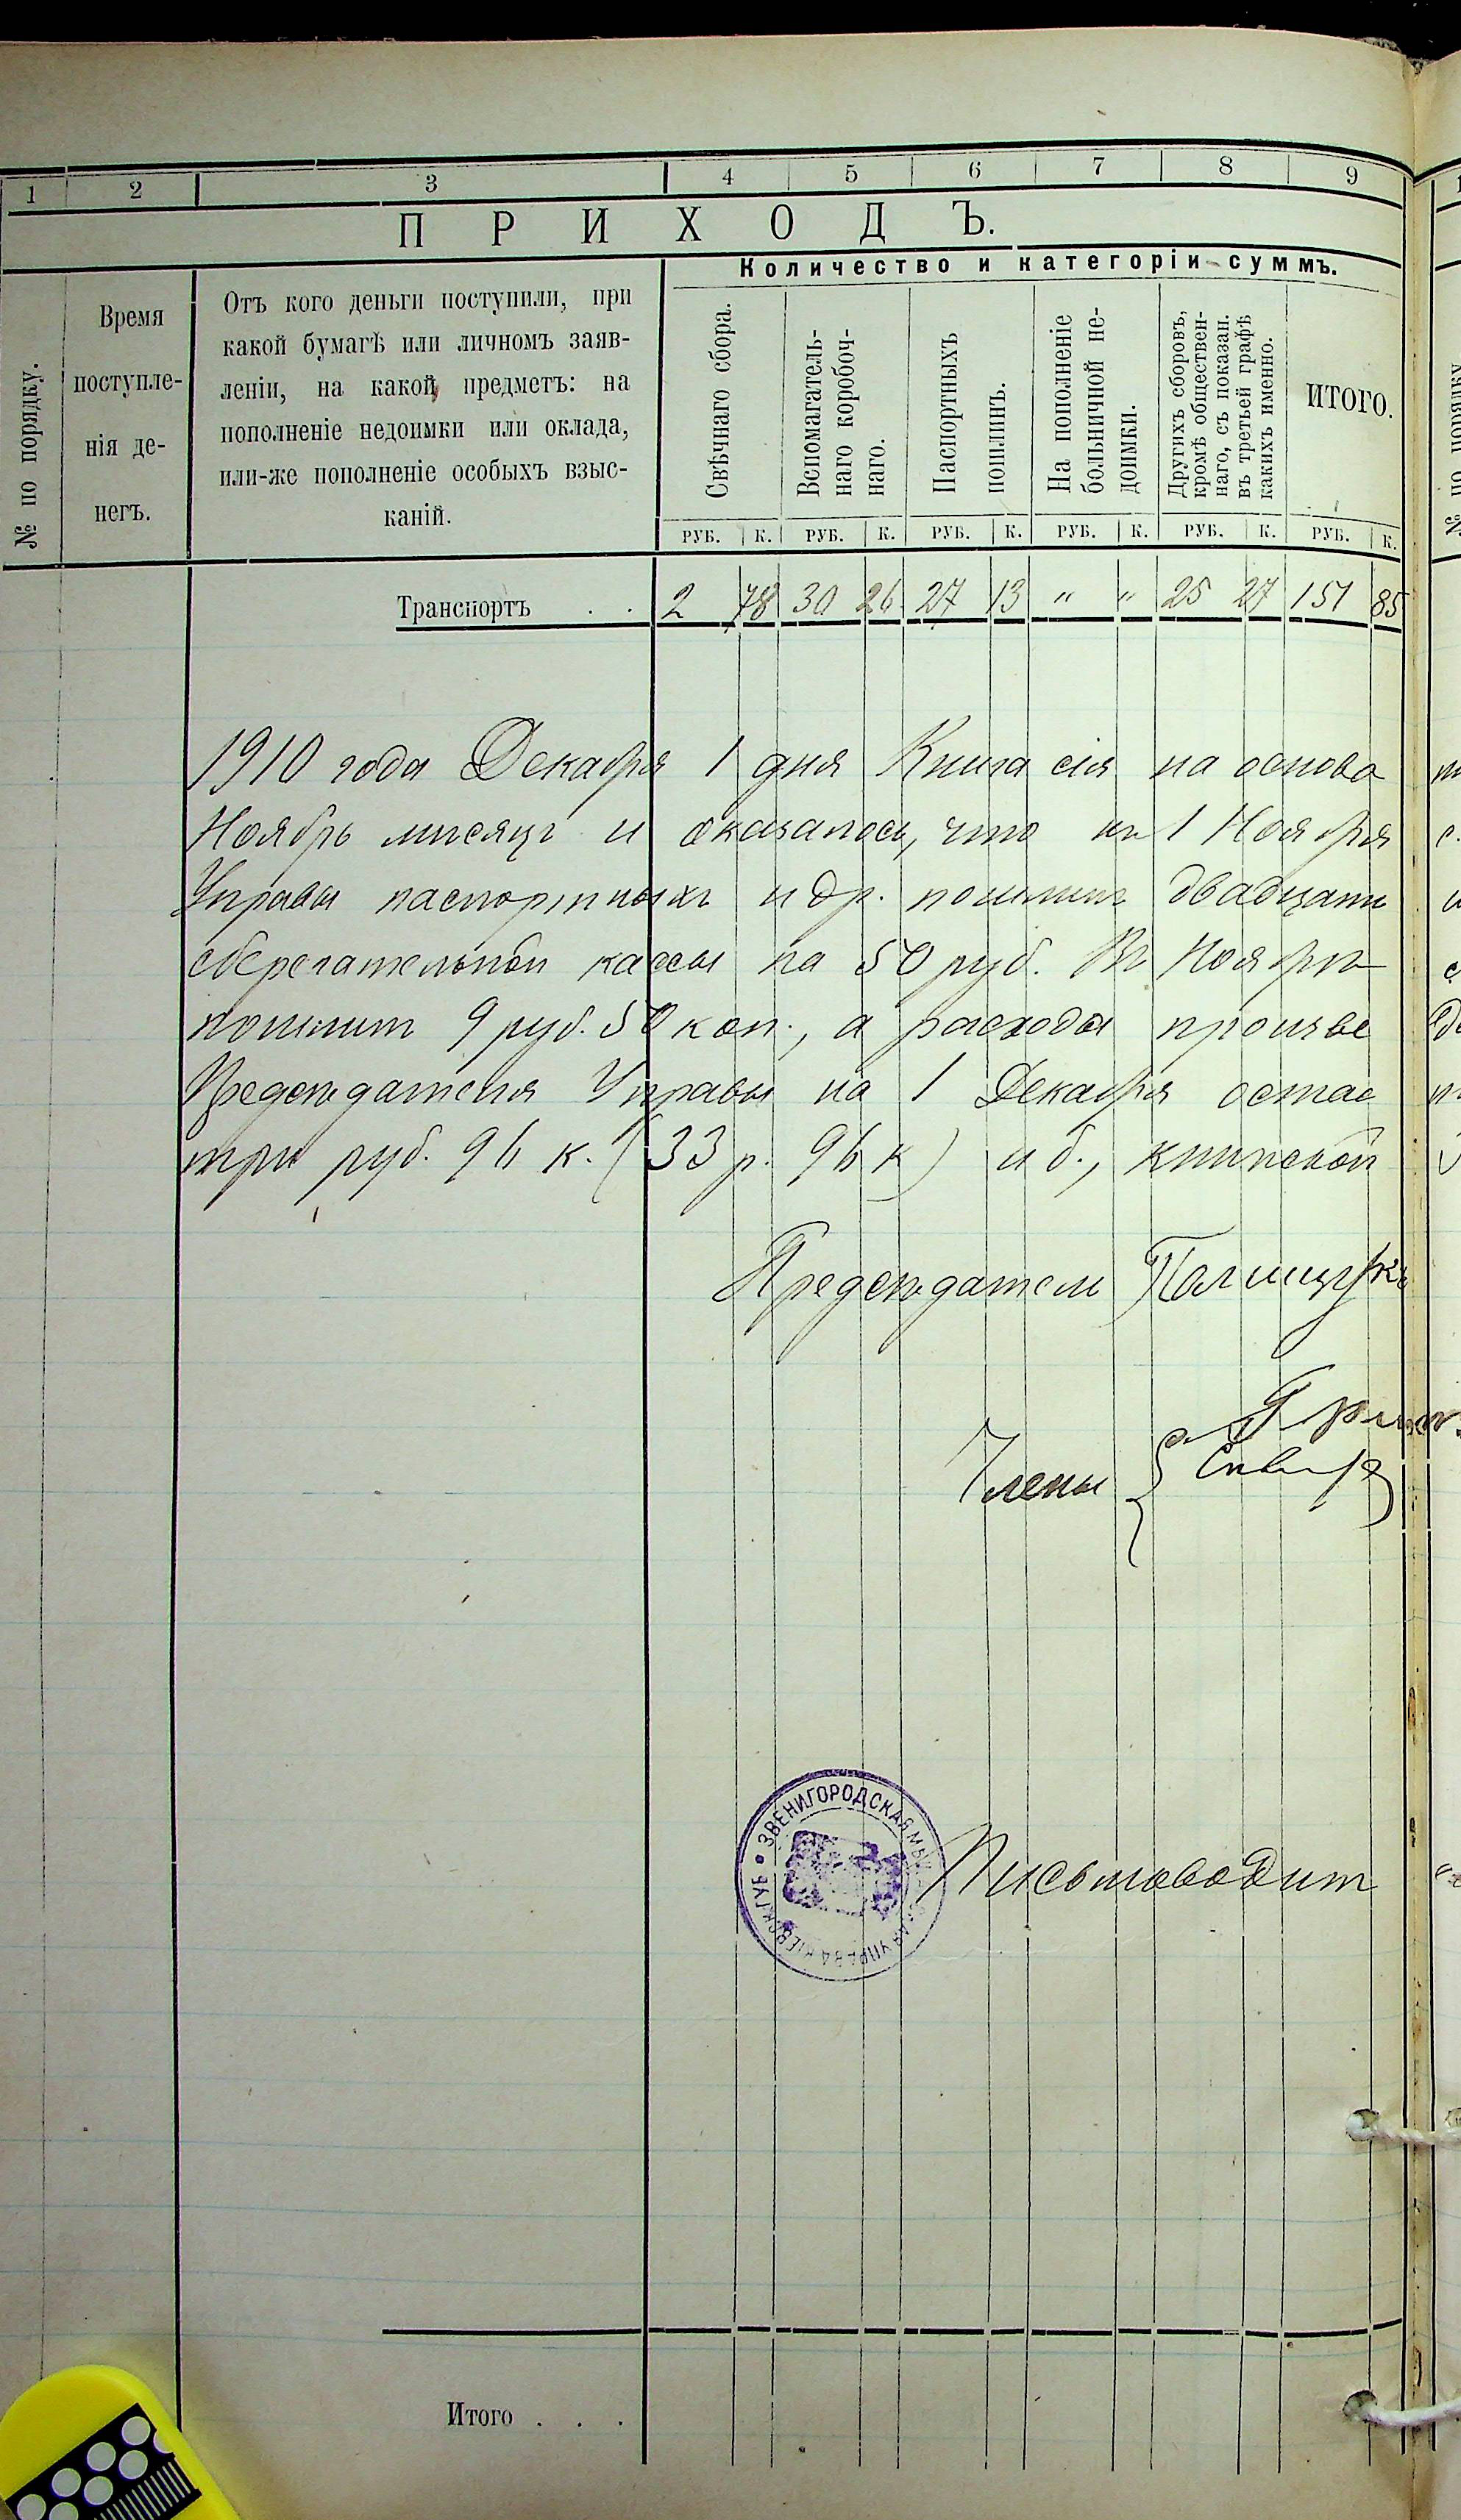 1 2 3 4 5 6 7 8 9
ПРИХОДЪ.
Количество и категоріи суммъ.
№ по порядку.
Время поступле-
нія де-
негъ.
Отъ кого деньги поступили, при
какой бумагѣ или личномъ заяв-
леніи, на какой предметъ: на
пополненіе недоимки или оклада,
или-же пополненіе особыхъ взыс-
каній.
Свѣчнаго сбора.
Вспомагатель-
наго коробоч-
наго.
Паспортныхъ
пошлинъ.
На пополненіе
больничной не-
доимки.
Другихъ сборовъ,
кромѣ обществен-
наго, съ показан.
въ третьей графѣ
какихъ именно.
ИТОГО.
РУБ. К. РУБ. К. РУБ. К. РУБ. К. РУБ. К. РУБ. К.
Транспортъ . . 2 78 30 26 27 13 " " 25 27 151 85
1910 года Декабря 1 дня Книга сія на основа
Ноябрь мѣсяцъ и оказалось, что къ 1 Ноября
Управы паспортныхъ и др. пошлинъ двадцать
сберегательной кассы на 50 руб. Въ Ноябрѣ
пошлинъ 9 руб. 50 коп., а расхода произве
Предсѣдателя Управы на 1 Декабря остае
три руб. 96 к. (33 р. 96 к) и б., книжкой
Предсѣдатель Полищукъ
Члены
ЗВЕНИГОРОДСКАЯ МѢЩАНСКАЯ УПРАВА КІЕВСК. ГУБ.
Письмоводит
Итого . . .